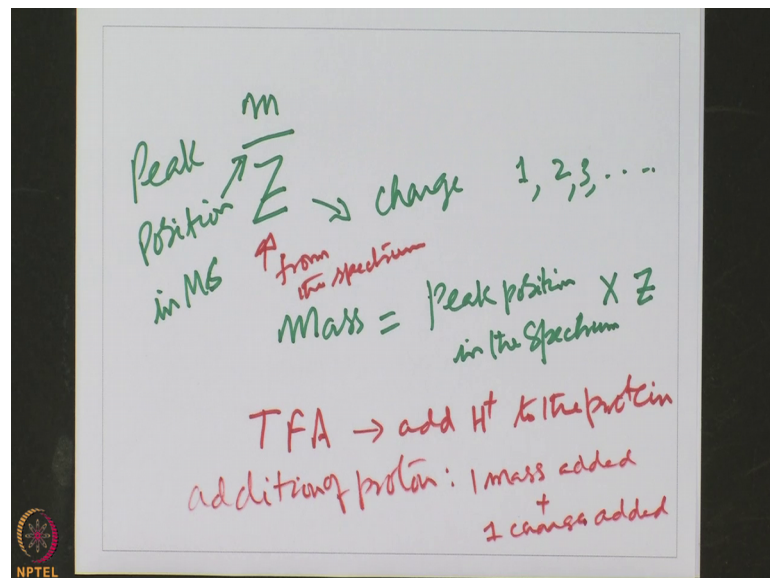 m
Peak
Position
in MS
Z
charge 1, 2, 3, ....
from
the spectrum
Mass = Peak position X Z
in the spectrum
TFA → add H+ to the protein
addition of proton: 1 mass added
+
1 charge added
NPTEL